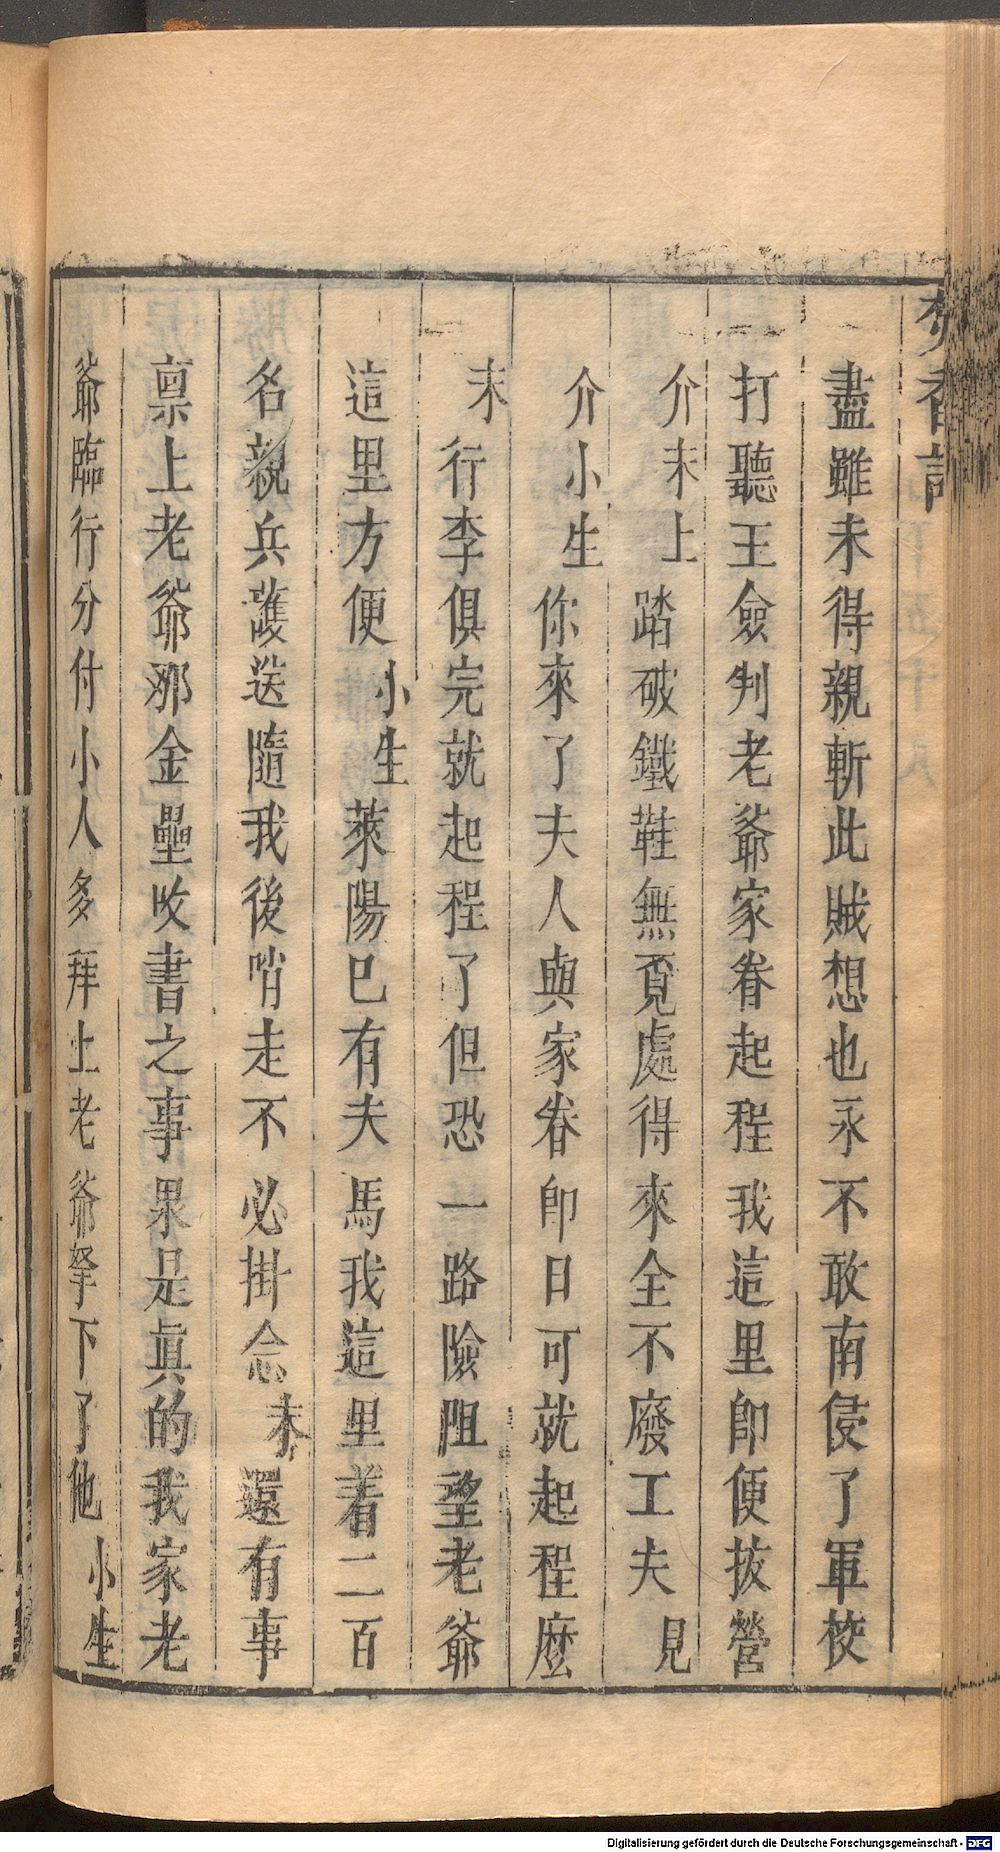 焚香記
盡雖未得親斬此賊想也永不敢南侵了軍校
打聽王僉判老爺家眷起程我這里即便拔營
介末上踏破鐵鞋無覔處得來全不廢工夫見
介小生你來了夫人與家眷即日可就起程麽
末行李俱完就起程了但恐一路險阻望老爺
這里方便小生萊陽已有夫馬我這里着二百
名親兵護送隨我後哨走不必掛念末還有事
禀上老爺那金壘改書之事果是真的我家老
爺臨行分付小人多拜上老爺拏下了他小生
Digitalisierung gefördert durch die Deutsche Forschungsgemeinschaft - DFG